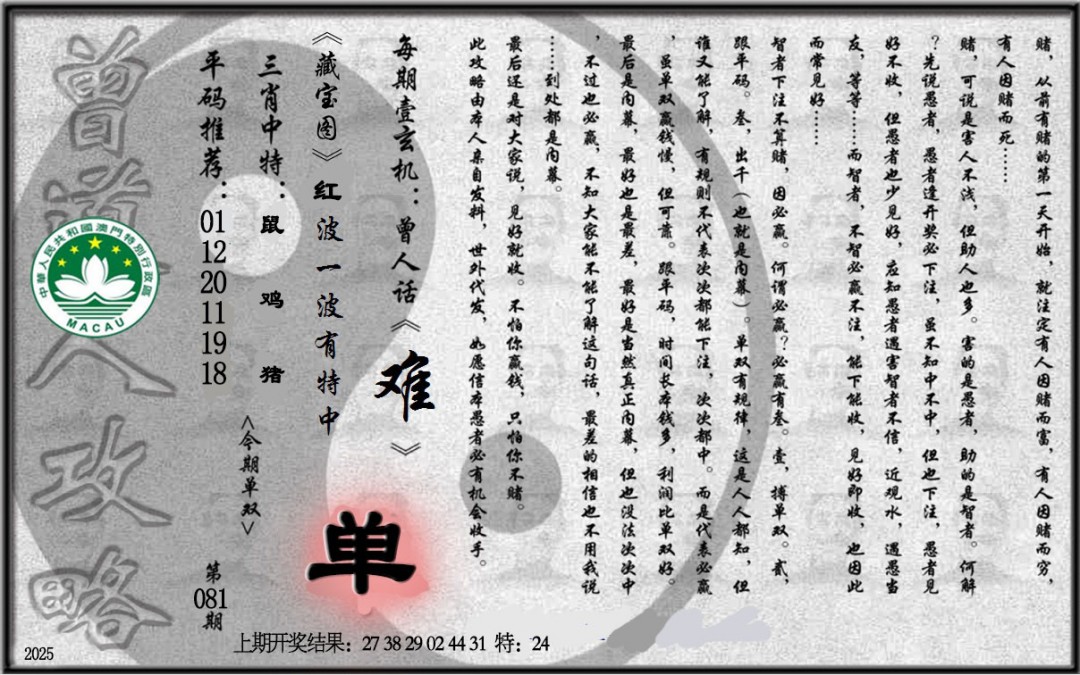 赌，从前有赌的第一天开始，就注定有人因赌而富，有人因赌而穷，
有人因赌而死……
赌，可说是害人不浅，但助人也多。害的是愚者，助的是智者。何解
？先说愚者，愚者逢开奖必下注，虽不知中不中，但也下注，愚者见
好不收，但愚者也少见好，应知愚者遇害智者不信，近观水，遇愚当
友，等等……而智者，不智必赢不注，能下能收，见好即收，也因此
而常见好……
智者下注不算赌，因必赢。何谓必赢？必赢有叁。壹，搏单双。贰，
跟平码。叁，出千（也就是内幕）。单双有规律，这是人人都知，但
谁又能了解，有规则不代表次次都能下注，次次都中。而是代表必赢
，虽单双赢钱慢，但可靠。跟平码，时间长本钱多，利润比单双好。
最后是内幕，最好也是最差，最好是当然真正内幕，但也没法次次中
，不过也必赢，不知大家能不能了解这句话，最差的相信也不用我说
……到处都是内幕。
最后还是对大家说，见好就收。不怕你赢钱，只怕你不赌。
此攻略由本人亲自发料，世外代发，如愿信本愚者必有机会收手。
每期壹玄机：曾人话《难》
《藏宝图》红波一波有特中
单
三肖中特：鼠 鸡 猪
<今期单双>
平码推荐：01 12 20 11 19 18
第081期
曾道人攻略
中華人民共和國澳門特別行政區
MACAU
上期开奖结果：27 38 29 02 44 31 特：24
2025